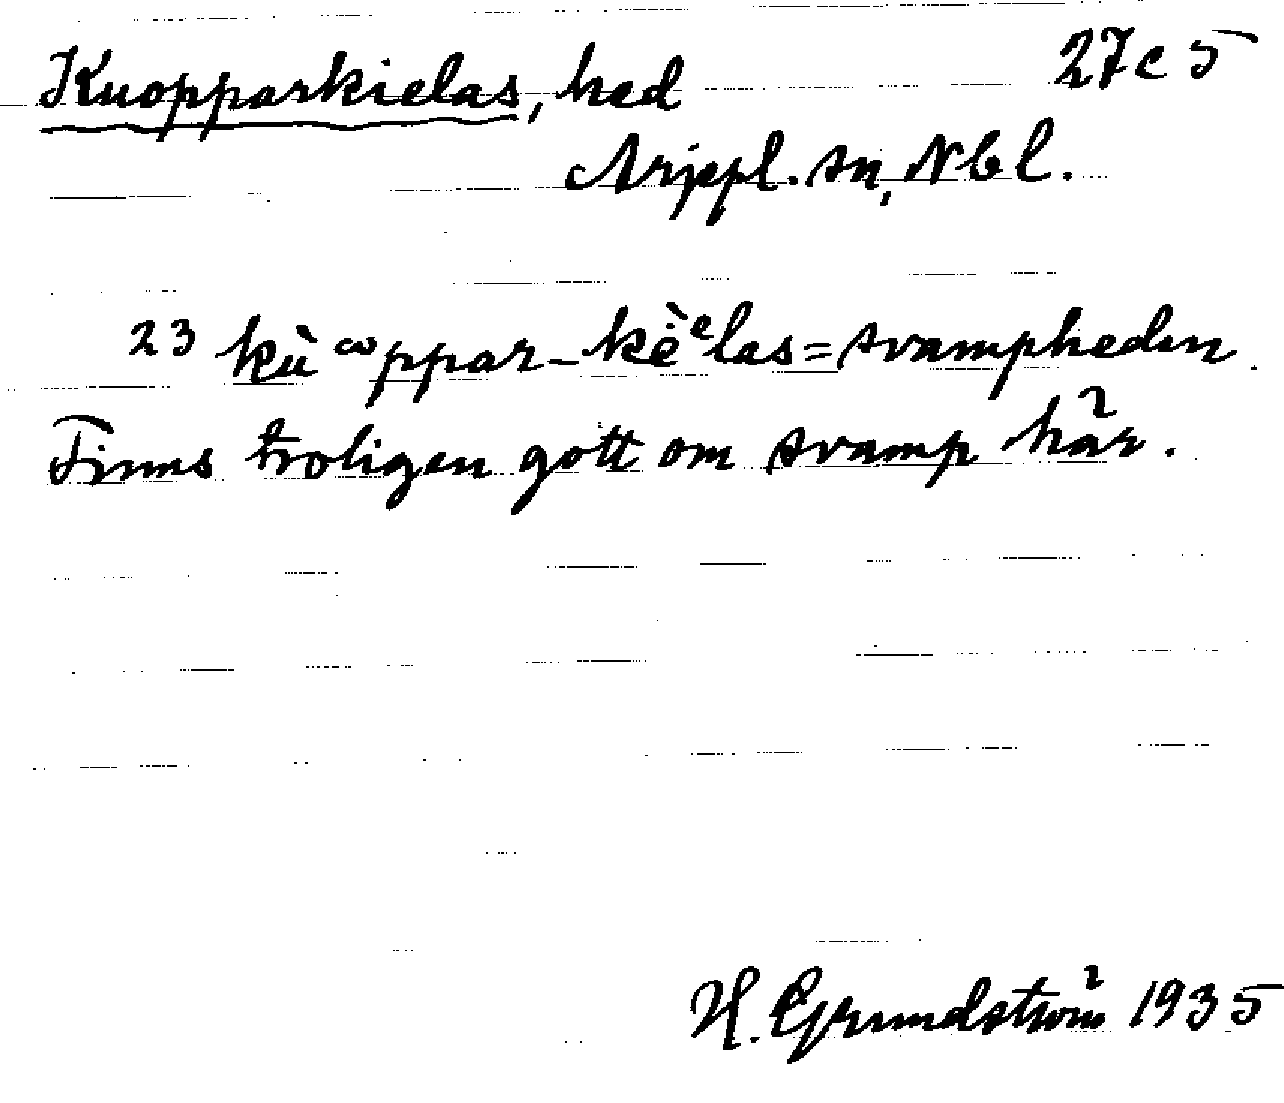 Kuopparkielas, hed 27c5
Arjeppl. sn, Nbl.
23 kù ͨͨppar-kė̀ᵉlas = svampheden.
Finns troligen gott om svamp här.
H. Grundström 1935